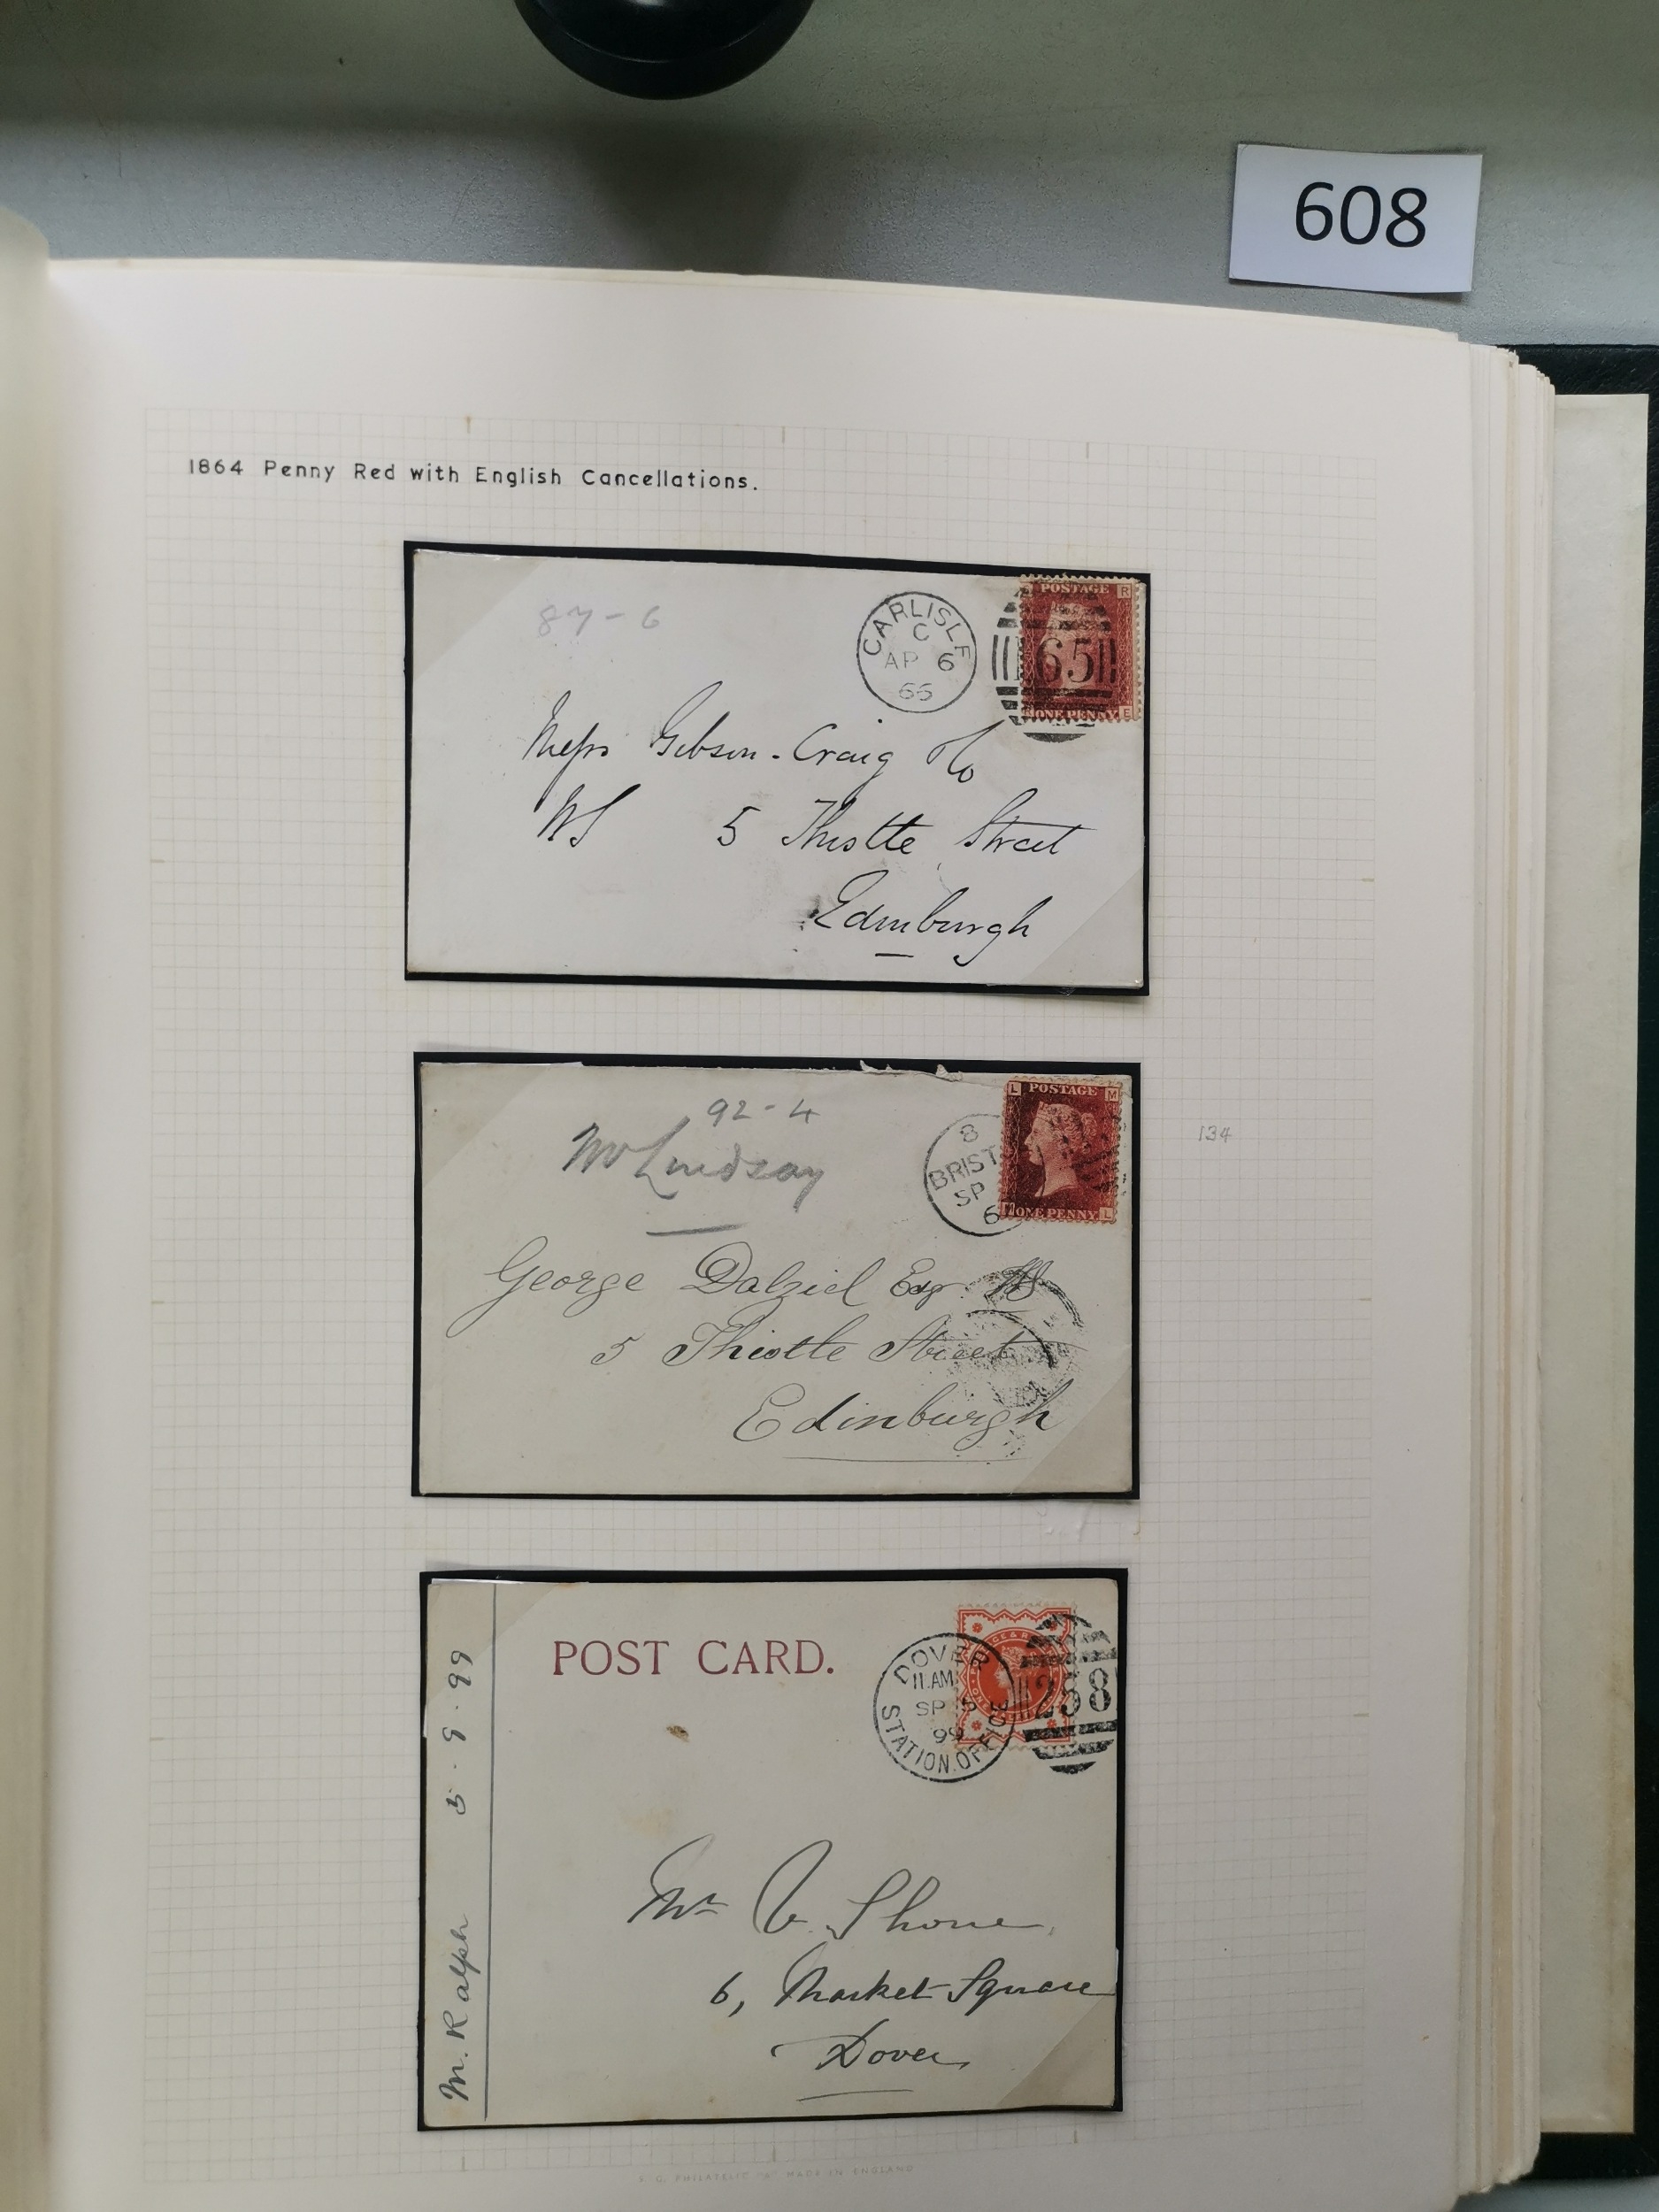 608
1864 Penny Red with English Cancellations.
87-6
CARLISLE
C
AP 6
65
POSTAGE
R
65
R ONE PENNY E
Messrs Gibson-Craig & Co
WS 5 Thistle Street
Edinburgh
92-4
Mr Lindsay
8
BRIST
SP
6
L POSTAGE M
M ONE PENNY L
134
George Dalziel Esqr WS
5 Thistle Street
Edinburgh
POST CARD.
DOVER
11.AM
SP 5
99
STATION.OFFICE
238
M. Ralph 5.9.99
Mr V. Shone,
6, Market Square
Dover
S. G. PHILATELIC "A" MADE IN ENGLAND